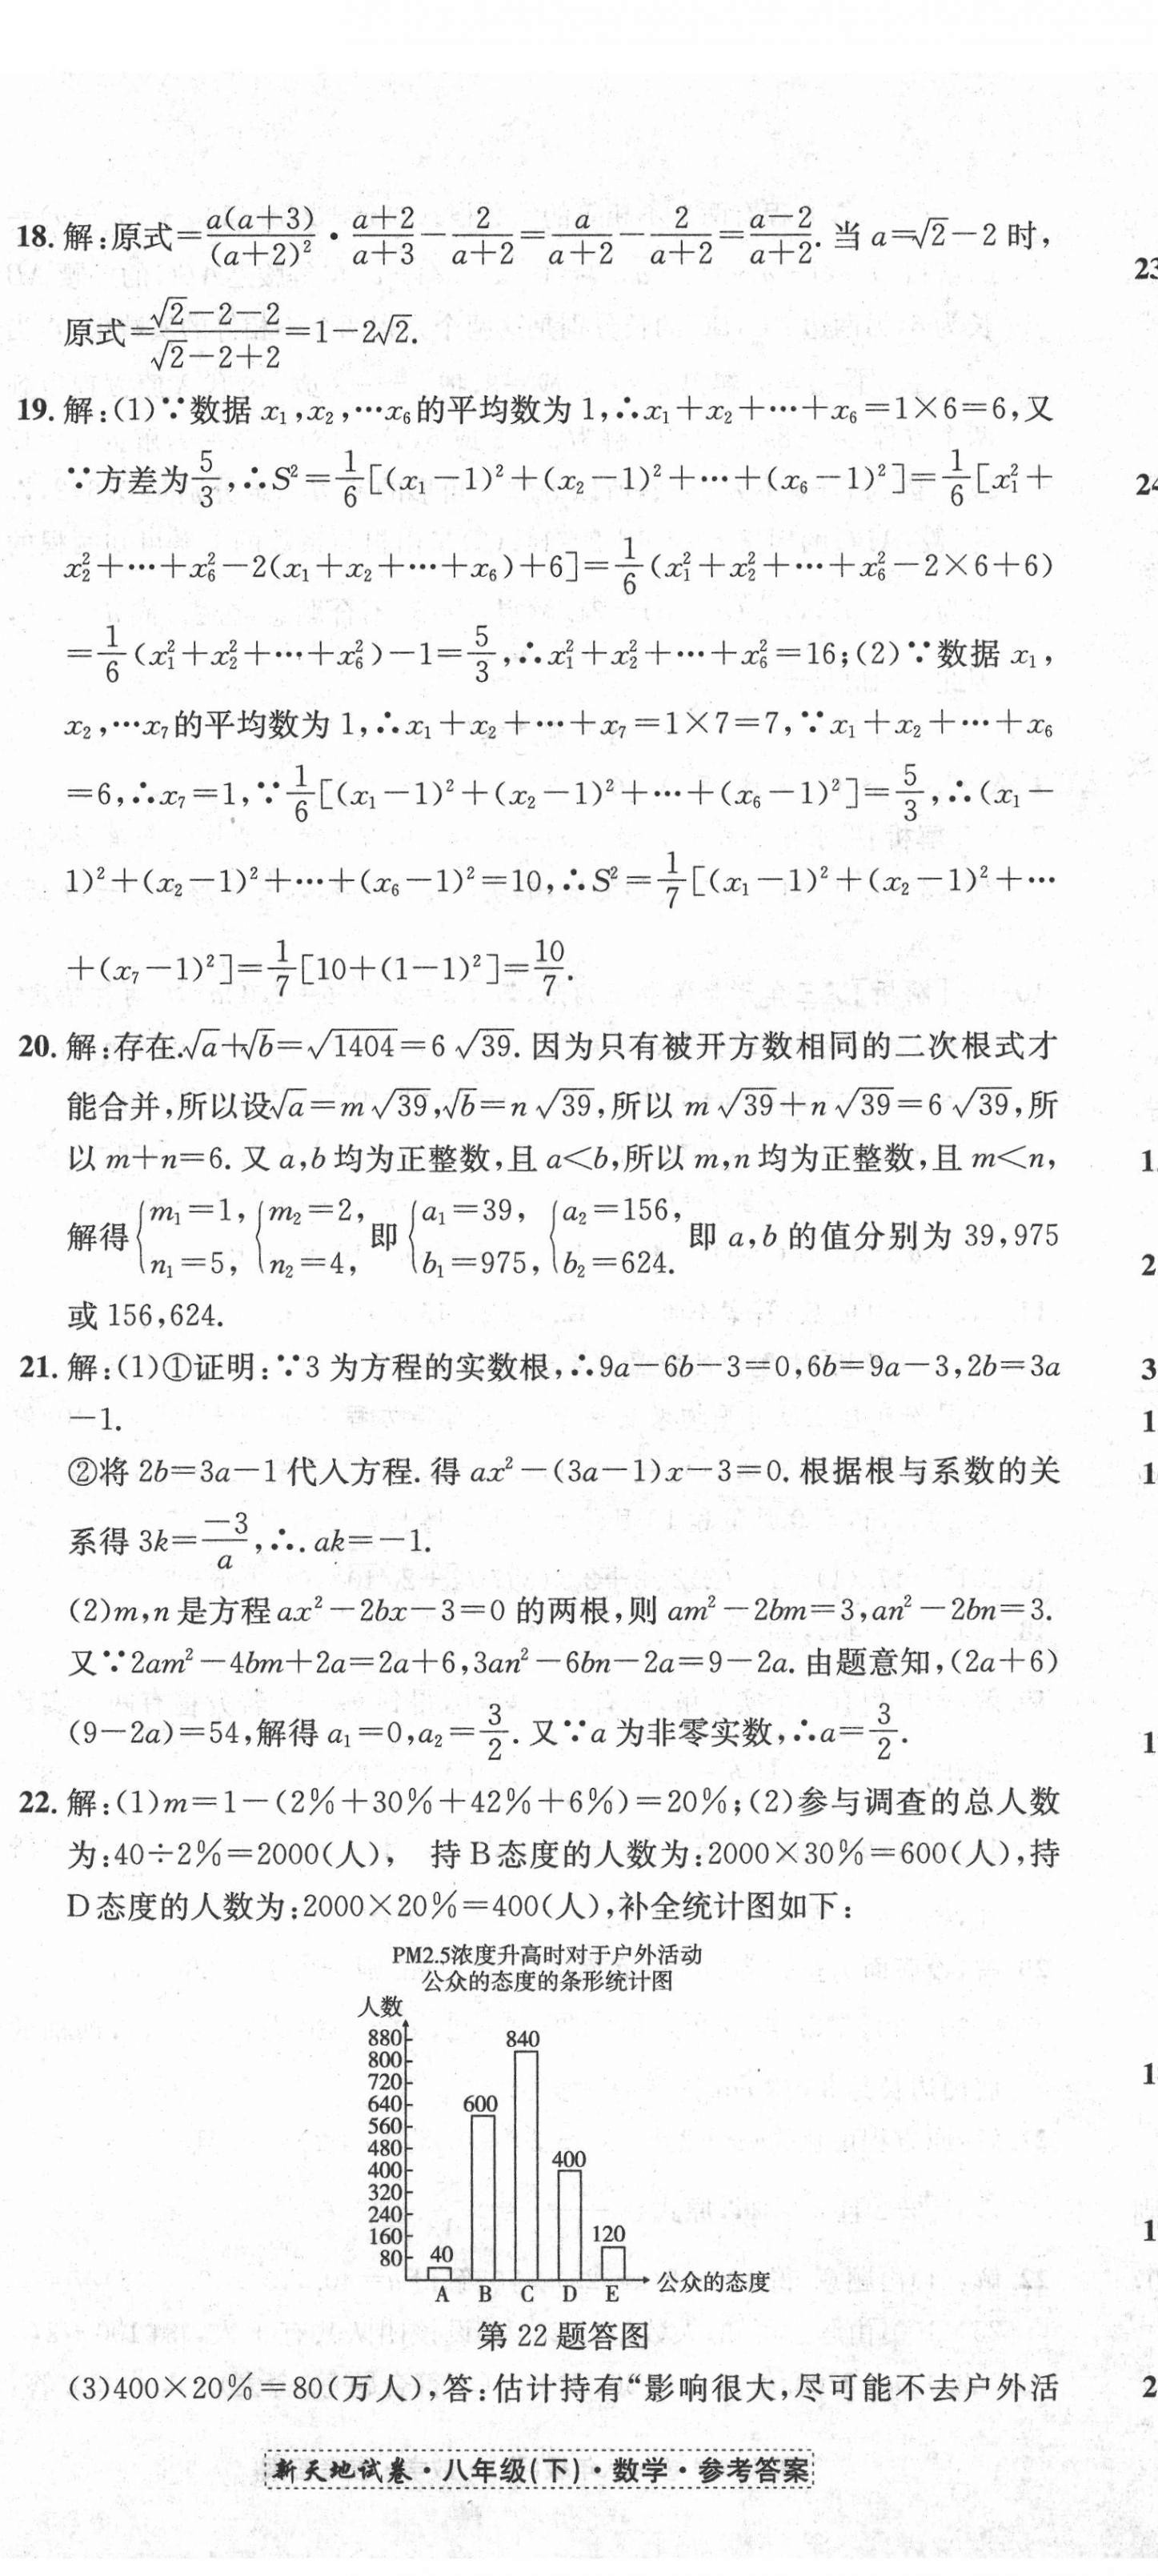 18. 解:原式=a(a+3)/(a+2)²·(a+2)/(a+3)−2/(a+2)=a/(a+2)−2/(a+2)=(a−2)/(a+2). 当 a=√2−2 时,
23
原式=(√2−2−2)/(√2−2+2)=1−2√2.
19. 解:(1)∵数据 x₁,x₂,…x₆的平均数为 1,∴x₁+x₂+…+x₆=1×6=6,又
∵方差为5/3,∴S²=1/6[(x₁−1)²+(x₂−1)²+…+(x₆−1)²]=1/6[x₁²+
24
x₂²+…+x₆²−2(x₁+x₂+…+x₆)+6]=1/6(x₁²+x₂²+…+x₆²−2×6+6)
=1/6(x₁²+x₂²+…+x₆²)−1=5/3,∴x₁²+x₂²+…+x₆²=16;(2)∵数据 x₁,
x₂,…x₇的平均数为 1,∴x₁+x₂+…+x₇=1×7=7,∵x₁+x₂+…+x₆
=6,∴x₇=1,∵1/6[(x₁−1)²+(x₂−1)²+…+(x₆−1)²]=5/3,∴(x₁−
1)²+(x₂−1)²+…+(x₆−1)²=10,∴S²=1/7[(x₁−1)²+(x₂−1)²+…
+(x₇−1)²]=1/7[10+(1−1)²]=10/7.
20. 解:存在.√a+√b=√1404=6√39. 因为只有被开方数相同的二次根式才
能合并,所以设√a=m√39,√b=n√39,所以 m√39+n√39=6√39,所
以 m+n=6. 又 a,b 均为正整数,且 a<b,所以 m,n 均为正整数,且 m<n,
解得{m₁=1, n₁=5, {m₂=2, n₂=4, 即{a₁=39, b₁=975, {a₂=156, b₂=624. 即 a,b 的值分别为 39,975
或 156,624.
21. 解:(1)①证明:∵3 为方程的实数根,∴9a−6b−3=0,6b=9a−3,2b=3a
−1.
②将 2b=3a−1 代入方程. 得 ax²−(3a−1)x−3=0. 根据根与系数的关
系得 3k=−3/a,∴. ak=−1.
(2)m,n 是方程 ax²−2bx−3=0 的两根,则 am²−2bm=3,an²−2bn=3.
又∵2am²−4bm+2a=2a+6,3an²−6bn−2a=9−2a. 由题意知,(2a+6)
(9−2a)=54,解得 a₁=0,a₂=3/2. 又∵a 为非零实数,∴a=3/2.
22. 解:(1)m=1−(2%+30%+42%+6%)=20%;(2)参与调查的总人数
为:40÷2%=2000(人), 持 B态度的人数为:2000×30%=600(人),持
D 态度的人数为:2000×20%=400(人),补全统计图如下:
PM2.5浓度升高时对于户外活动
公众的态度的条形统计图
人数
880
800
720
640
560
480
400
320
240
160
80
40
600
840
400
120
A B C D E 公众的态度
第 22 题答图
(3)400×20%=80(万人),答:估计持有“影响很大,尽可能不去户外活
新天地试卷·八年级(下)·数学·参考答案